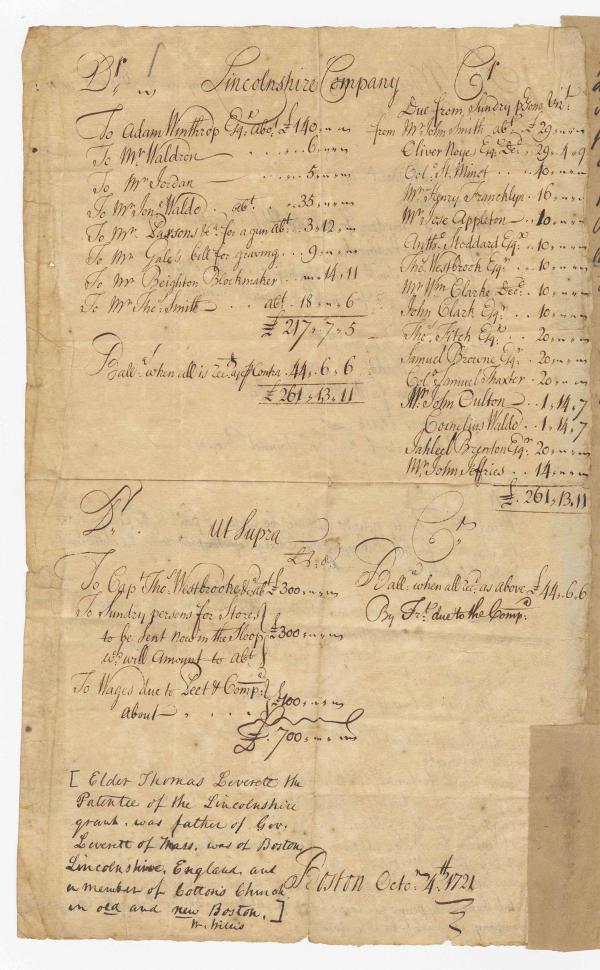 Dr. Lincolnshire Company Cr.
To Adam Winthrop Esqr. abot. £140,,
To Mr. Waldron 6,,
To Mr Jordan 5,,
To Mr Jona. Waldo abt. 35,,
To Mr. Parsons &c. for a gun abt. 3,,12,,
To Mr Gale's bill for graving 9,,
To Mr Beighton Blockmaker 14,,11
To Mr Thos. Smith abt. 18,, 6
£217,,7,,5
Ballce. when all is Recd. as pr Contra 44,,6,,6
£261,,13,,11
Due from Sundry psons Vizt.
from Mr. John Smith abt. £29,,
Oliver Noye Esqr. Decd. 29,,4,,9
Colo. St. Minot 40,,
Mr. Henry Franchlyn 16,,
Mr. Jose Appleton 10,,
Antho. Stoddard Esqr. 10,,
Tho. Westbrook Esqr. 10,,
Mr Wm. Clarke Decd. 10,,
John Clark Esqr. 10,,
Tho. Fitch Esqr. 20,,
Samuel Browne Esqr. 20,,
Colo. Samuel Thaxter 20,,
Mr. John Oulton 1,,14,,7
Cornelius Waldo 1,,14,,7
Jahleel Brenton Esqr. 20,,
Mr. John Jeffries 14,,
£ 261,,13,,11
Dr. Ut Supra Cr.
To Capt. Tho. Westbrooke &c abt. £300,,
To Sundry persons for Stores
to be Sent now in the Sloop
wch. will Amount to abt. £300,,
To Wages due to Leet & Compa.
about £100,,
£ 700,,
Ballce. when all Recd. as above £44,,6,,6
By due to the Compa.
[ Elder Thomas Leverett the
Patentee of the Lincolnshire
grant, was father of Gov.
Leverett of Mass. was of Boston,
Lincolnshire, England, and
a member of Cotton's Church
in old and new Boston. ]
Wm. Willis
Boston Octor. 4th. 1721